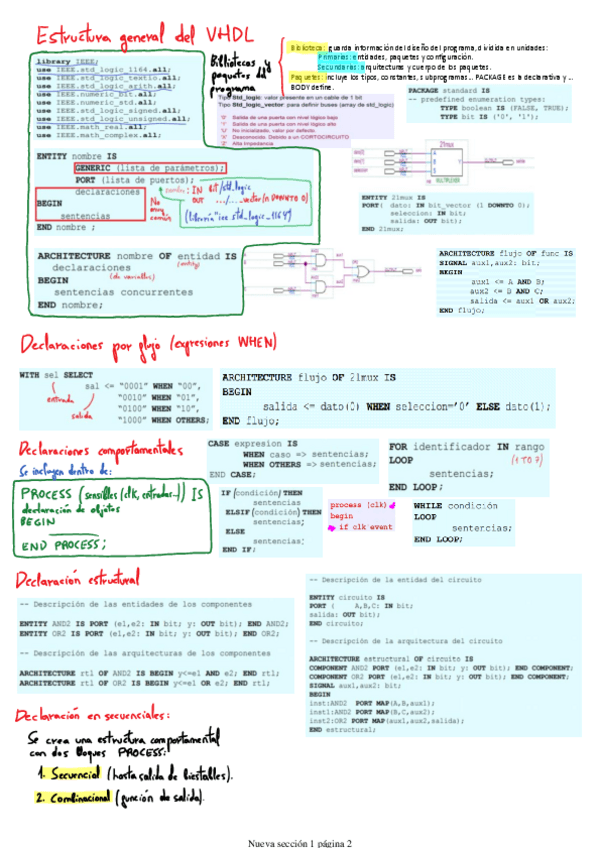 Estructura general del VHDL
library IEEE;
use IEEE.std_logic_1164.all;
use IEEE.std_logic_textio.all;
use IEEE.std_logic_arith.all;
use IEEE.numeric_bit.all;
use IEEE.numeric_std.all;
use IEEE.std_logic_signed.all;
use IEEE.std_logic_unsigned.all;
use IEEE.math_real.all;
use IEEE.math_complex.all;
Bibliotecas y
paquetes del
programa
Biblioteca: guarda información del diseño del programa, dividida en unidades:
Primarias: entidades, paquetes y configuración.
Secundarias: arquitecturas y cuerpo de los paquetes.
Paquetes: incluye los tipos, constantes, subprogramas... PACKAGE es la declarativa y ...
BODY define.
Tipo Std_logic: valor presente en un cable de 1 bit
Tipo Std_logic_vector: para definir buses (array de std_logic)
'0' Salida de una puerta con nivel lógico bajo
'1' Salida de una puerta con nivel lógico alto
'U' No inicializado, valor por defecto.
'X' Desconocido. Debido a un CORTOCIRCUITO
'Z' Alta Impedancia
PACKAGE standard IS
-- predefined enumeration types:
TYPE boolean IS (FALSE, TRUE);
TYPE bit IS ('0', '1');
ENTITY nombre IS
GENERIC (lista de parámetros);
PORT (lista de puertos);
declaraciones
BEGIN
sentencias
END nombre ;
No
muy
común
nombre: IN bit/std_logic
OUT .../..._vector(n DOWNTO 0)
21mux
ENTITY 21mux IS
PORT( dato: IN bit_vector (1 DOWNTO 0);
seleccion: IN bit;
salida: OUT bit);
END 21mux;
ARCHITECTURE nombre OF entidad IS
(entity)
declaraciones
(de variables)
BEGIN
sentencias concurrentes
END nombre;
ARCHITECTURE flujo OF func IS
SIGNAL aux1,aux2: bit;
BEGIN
aux1 <= A AND B;
aux2 <= B AND C;
salida <= aux1 OR aux2;
END flujo;
Declaraciones por flujo (expresiones WHEN)
WITH sel SELECT
sal <= "0001" WHEN "00",
"0010" WHEN "01",
"0100" WHEN "10",
"1000" WHEN OTHERS;
entrada
salida
ARCHITECTURE flujo OF 21mux IS
BEGIN
salida <= dato(0) WHEN seleccion='0' ELSE dato(1);
END flujo;
Declaraciones comportamentales
Se incluyen dentro de:
PROCESS (sensibles(clk, entradas...)) IS
declaración de objetos
BEGIN
END PROCESS;
CASE expresion IS
WHEN caso => sentencias;
WHEN OTHERS => sentencias;
END CASE;
FOR identificador IN rango
LOOP (1 TO 7)
sentencias;
END LOOP;
IF (condición) THEN
sentencias
ELSIF (condición) THEN
sentencias;
ELSE
sentencias;
END IF;
process (clk)
begin
if clk event
WHILE condición
LOOP
sentencias;
END LOOP;
Declaración estructural
-- Descripción de las entidades de los componentes
ENTITY AND2 IS PORT (e1,e2: IN bit; y: OUT bit); END AND2;
ENTITY OR2 IS PORT (e1,e2: IN bit; y: OUT bit); END OR2;
-- Descripción de las arquitecturas de los componentes
ARCHITECTURE rtl OF AND2 IS BEGIN y<=e1 AND e2; END rtl;
ARCHITECTURE rtl OF OR2 IS BEGIN y<=e1 OR e2; END rtl;
-- Descripción de la entidad del circuito
ENTITY circuito IS
PORT ( A,B,C: IN bit;
salida: OUT bit);
END circuito;
-- Descripción de la arquitectura del circuito
ARCHITECTURE estructural OF circuito IS
COMPONENT AND2 PORT (e1,e2: IN bit; y: OUT bit); END COMPONENT;
COMPONENT OR2 PORT (e1,e2: IN bit; y: OUT bit); END COMPONENT;
SIGNAL aux1,aux2: bit;
BEGIN
inst:AND2 PORT MAP(A,B,aux1);
inst1:AND2 PORT MAP(B,C,aux2);
inst2:OR2 PORT MAP(aux1,aux2,salida);
END estructural;
Declaración en secuenciales:
Se crea una estructura comportamental
con dos bloques PROCESS:
1. Secuencial (hasta salida de biestables).
2. Combinacional (función de salida).
Nueva sección 1 página 2